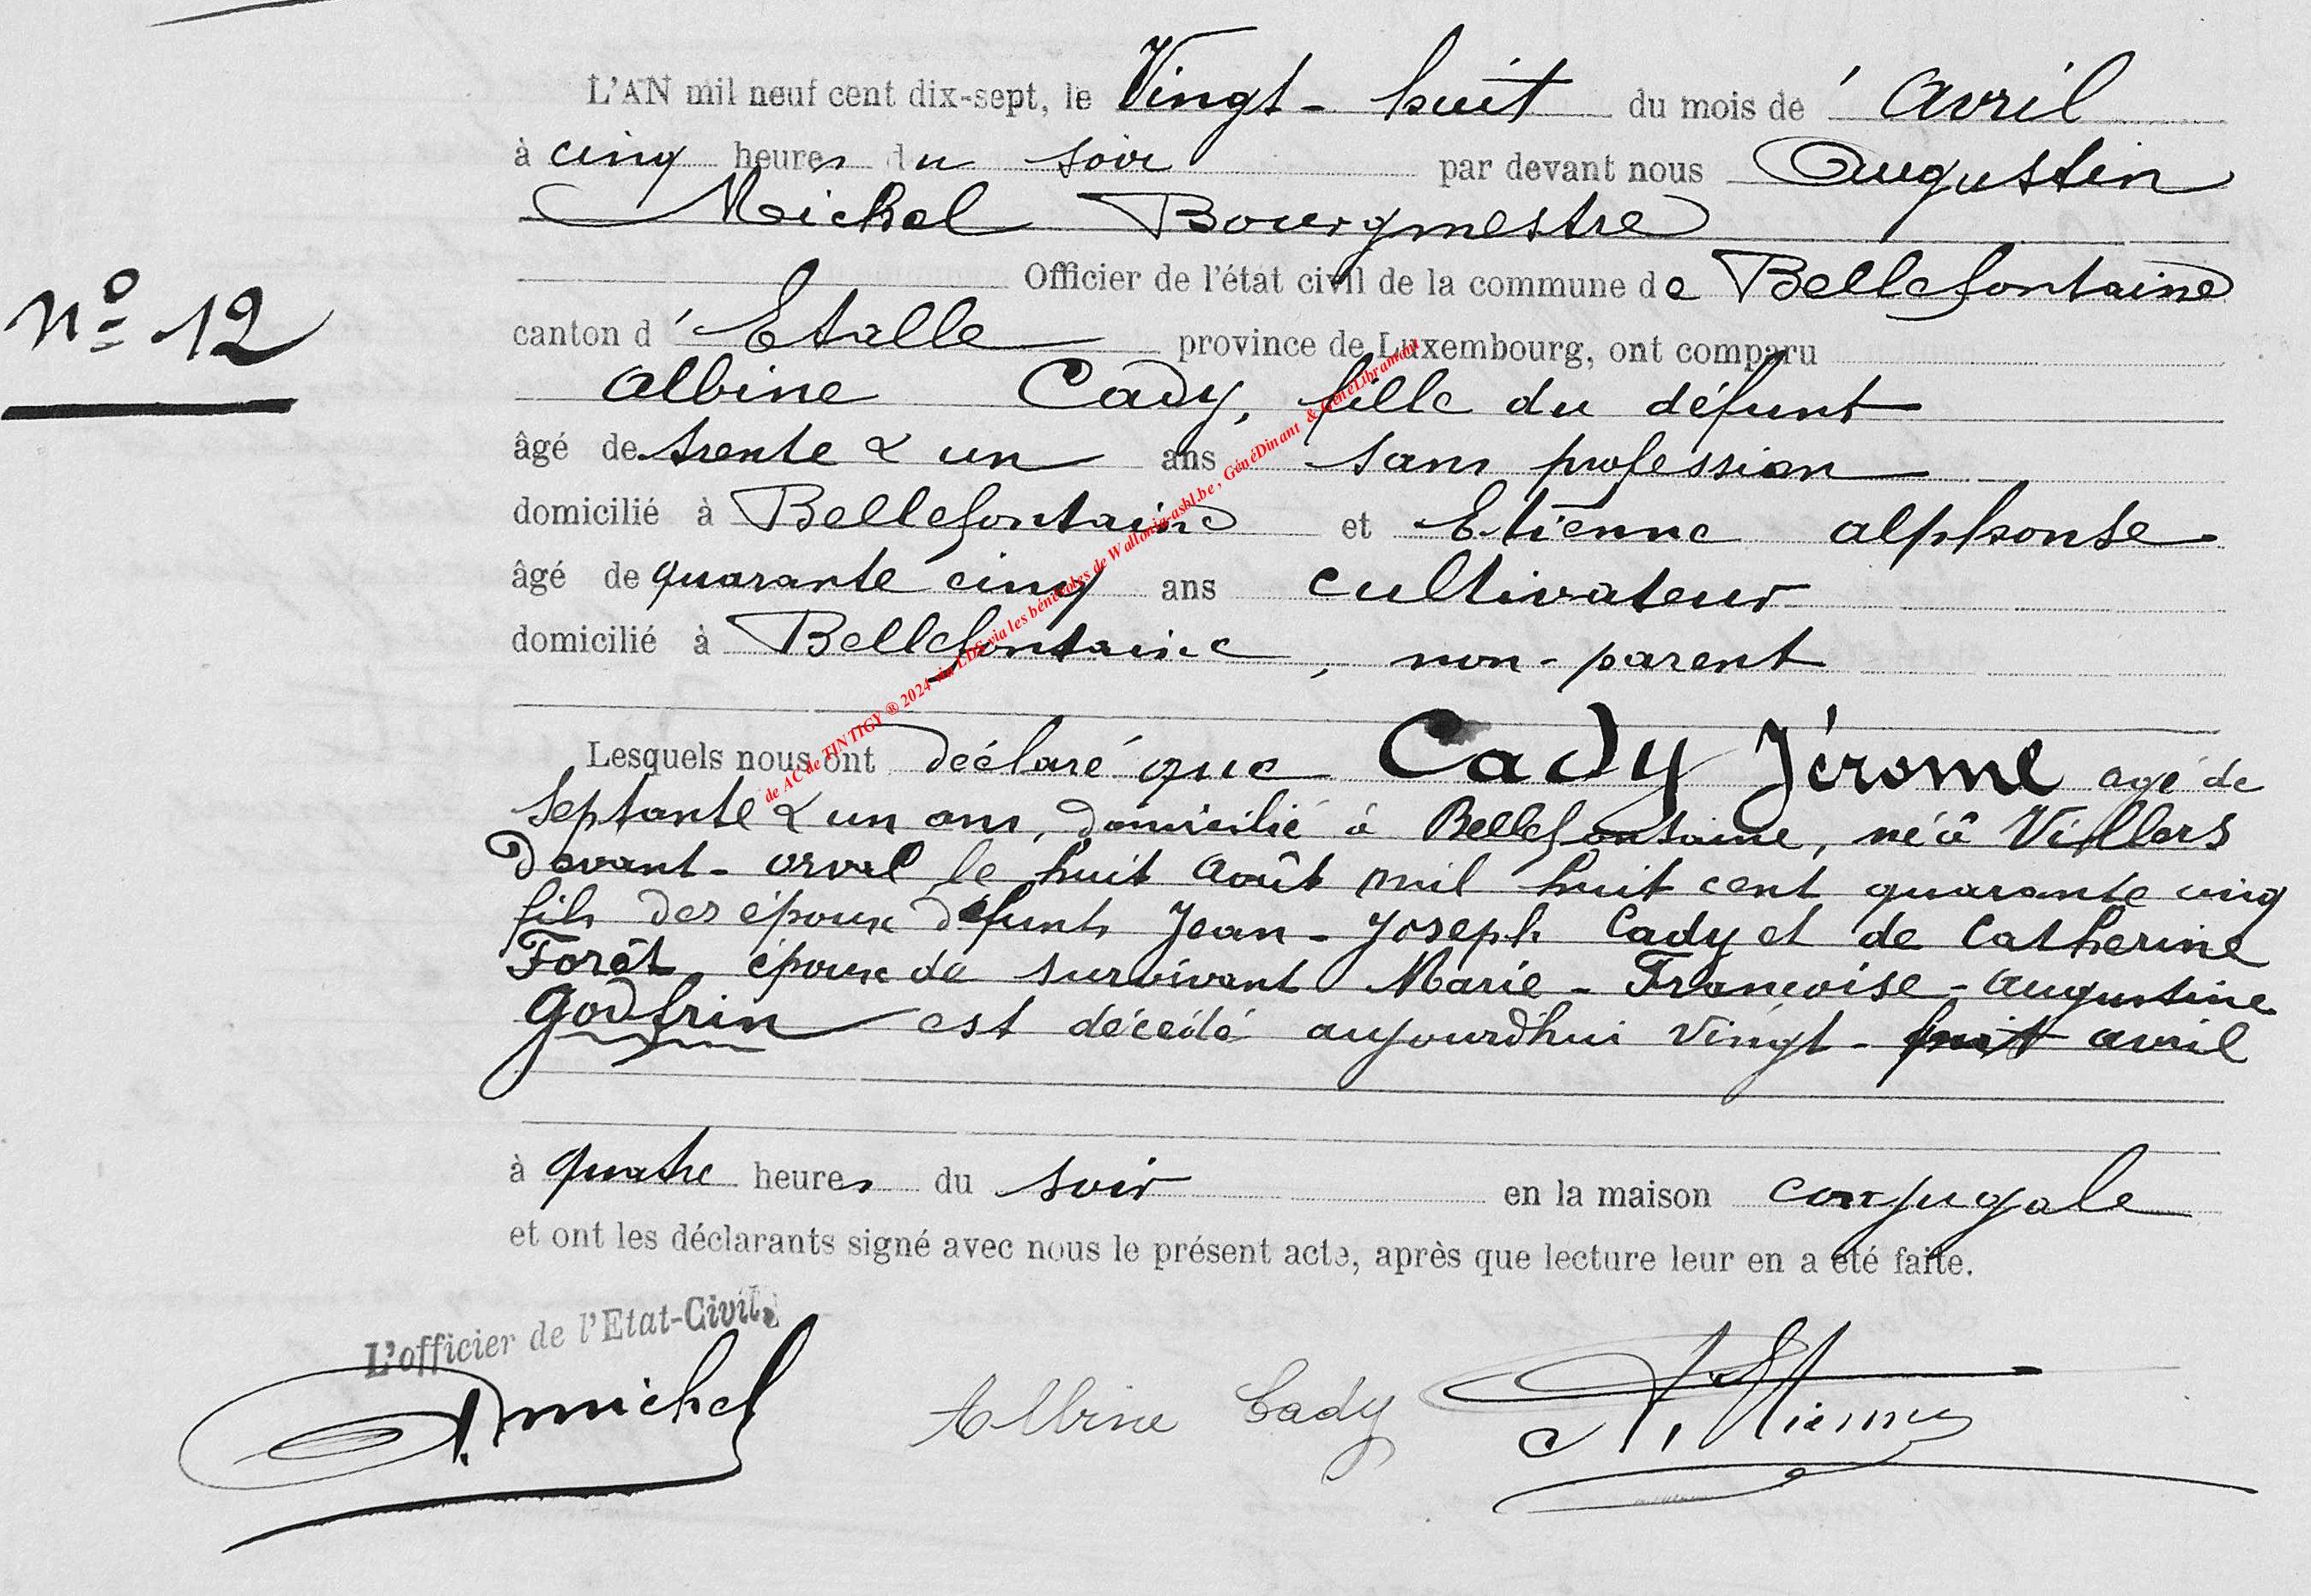 L'AN mil neuf cent dix-sept, le Vingt-huit du mois de Avril
à cinq heures du soir par devant nous Augustin
Michel Bourgmestre
Officier de l'état civil de la commune de Bellefontaine
N° 12
canton d'Etalle province de Luxembourg, ont comparu
Albine Cady, fille du défunt
âgé de trente & un ans sans profession
domicilié à Bellefontaine et Etienne Alphonse
âgé de quarante cinq ans cultivateur
domicilié à Bellefontaine, non-parent
de AC de TINTIGY ® 2024 via LDS via les bénévoles de Wallonia-asbl.be, GénéDinant & GénéLibramont
Lesquels nous ont déclaré que Cady Jérome agé de
septante & un ans, domicilié à Bellefontaine, né à Villers
Devant-orval le huit Août mil huit cent quarante cinq
fils des époux défunts Jean-Joseph Cady et de Catherine
Forêt, époux de survivant Marie-Françoise-Augustine
Godfrin est décédé aujourd'hui vingt-huit avril
à quatre heures du soir en la maison conjugale
et ont les déclarants signé avec nous le présent acte, après que lecture leur en a été faite.
L'officier de l'Etat-Civil,
A. Michel Albine Cady A. Etienne